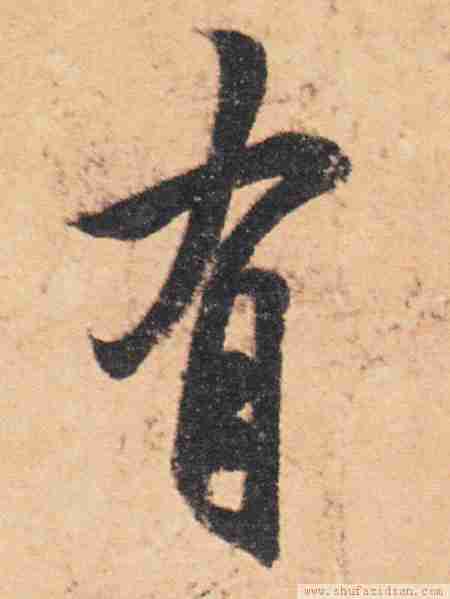 有
www.shufazidian.com